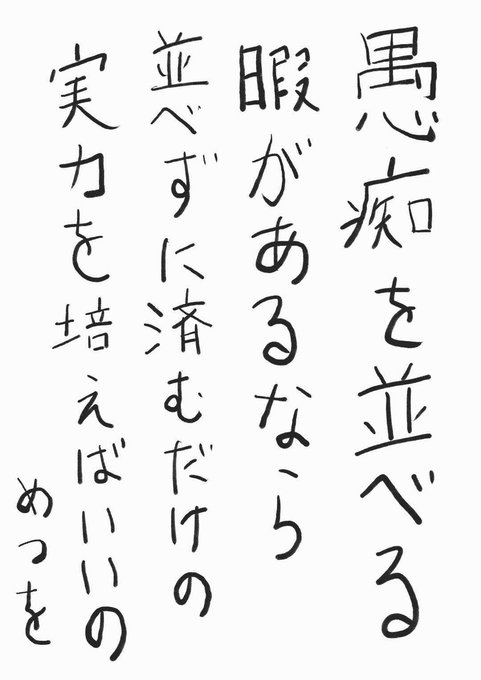 愚痴を並べる
暇があるなら
並べずに済むだけの
実力を培えばいいの
めつを